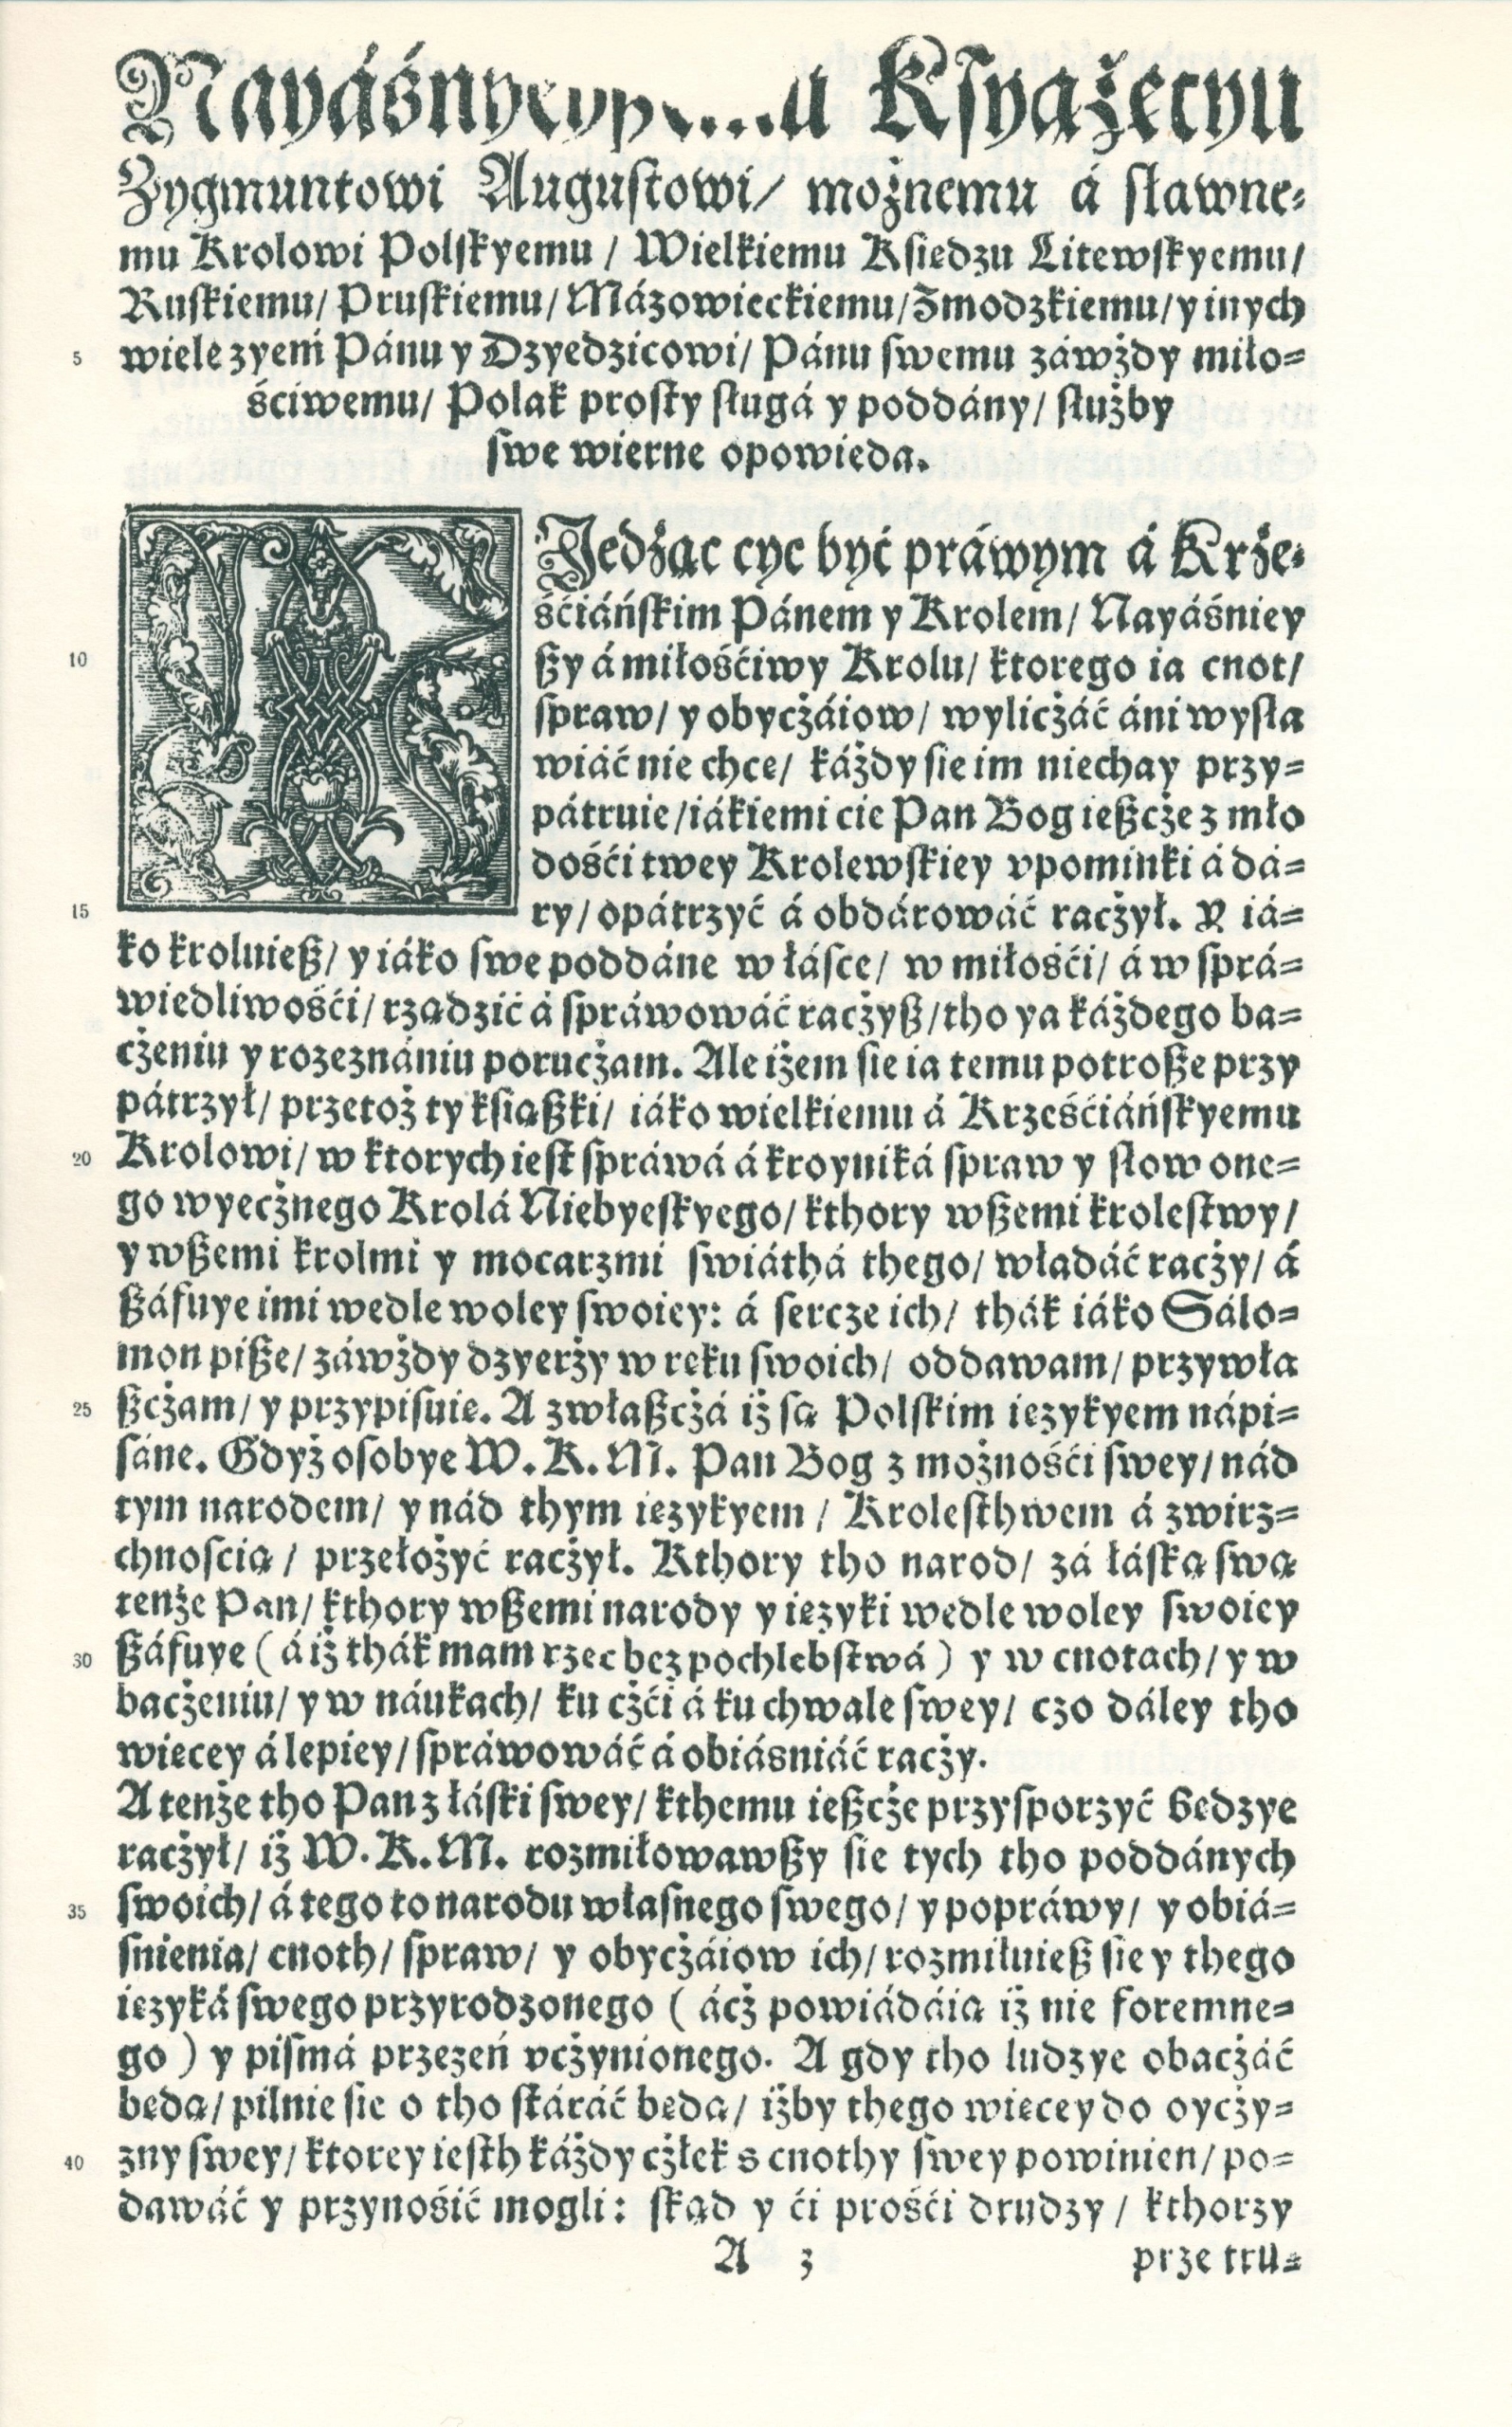 Kſyążęcyu
Zygmuntowi Auguſtowi/ możnemu á ſławne⸗
mu Krolowi Polſkyemu / Wielkiemu Kſiedzu Litewſkyemu/
Ruſkiemu/ Pruſkiemu/ Mázowieckiemu/ Żmodzkiemu/ y inych
5 wiele zyem̃ Pánu y Dzyedzicowi/ Pánu ſwemu záwżdy miło⸗
śćiwemu/ Polak proſty ſługá y poddány/ ſłużby
ſwe wierne opowieda.
WJedżąc cyę być práwym á Krże⸗
śćiáńſkim Pánem y Krolem/ Nayáśniey
10 ßy á miłośćiwy Krolu/ ktorego ia cnot/
ſpraw/ y obycżáiow/ wylicżáć áni wyſła
wiáć nie chcę/ káżdy ſie im niechay przy⸗
pátruie/ iákiemi cię Pan Bog ießcże z mło
dośći twey Krolewſkiey vpominki á dá⸗
15 ry/ opátrzyć á obdárowáć racżył. Y iá⸗
ko kroluieß/ y iáko ſwe poddáne w łáſce/ w miłośći/ á w ſprá⸗
wiedliwośći/ rządzić á ſpráwowáć racżyß/ tho ya káżdego ba⸗
cżeniu y rozeznániu porucżam. Ale iżem ſie ia temu potroße przy
pátrzył/ przetoż ty kſiąßki/ iáko wielkiemu á Krześćiáńſkyemu
20 Krolowi/ w ktorych ieſt ſpráwá á kroyniká ſpraw y ſłow one⸗
go wyecżnego Krolá Niebyeſkyego/ kthory wßemi kroleſtwy/
y wßemi krolmi y mocarzmi ſwiáthá thego/ władáć racży/ á
ßáfuye imi wedle woley ſwoiey: á ſercze ich/ thák iáko Sálo⸗
mon piße/ záwżdy dzyerży w ręku ſwoich/ oddawam/ przywła
25 ßcżam/ y przypiſuię. A zwłaßcżá iż ſą Polſkim ięzykyem nápi⸗
ſáne. Gdyż oſobye W. K. M. Pan Bog z możnośći ſwey/ nád
tym narodem/ y nád thym ięzykyem / Kroleſthwem á zwirz⸗
chnoscią / przełożyć racżył. Kthory tho narod/ zá łáſką ſwą
tenże Pan/ kthory wßemi narody y ięzyki wedle woley ſwoiey
30 ßáfuye ( á iż thák mam rzec bez pochlebſtwá ) y w cnotach/ y w
bacżeniu/ y w náukach/ ku cżći á ku chwale ſwey/ czo dáley tho
więcey á lepiey/ ſpráwowáć á obiáśniáć racży.
A tenże tho Pan z łáſki ſwey/ kthemu ießcże przyſporzyć będzye
racżył/ iż W. K. M. rozmiłowawßy ſie tych tho poddánych
35 ſwoich/ á tego to narodu własnego ſwego/ y popráwy/ y obiá⸗
ſnienia/ cnoth/ ſpraw/ y obycżáiow ich/ rozmiłuieß ſie y thego
ięzyká ſwego przyrodzonego ( ácż powiádáią iż nie foremne⸗
go ) y piſmá przezeń vcżynionego. A gdy tho ludzye obacżáć
będą/ pilnie ſie o tho ſtáráć będą/ iżby thego więcey do oycży⸗
40 zny ſwey/ ktorey ieſth káżdy cżłek s cnothy ſwey powinien/ po⸗
dawáć y przynośić mogli: ſkąd y ći prośći drudzy / kthorzy
A 3 prze tru⸗